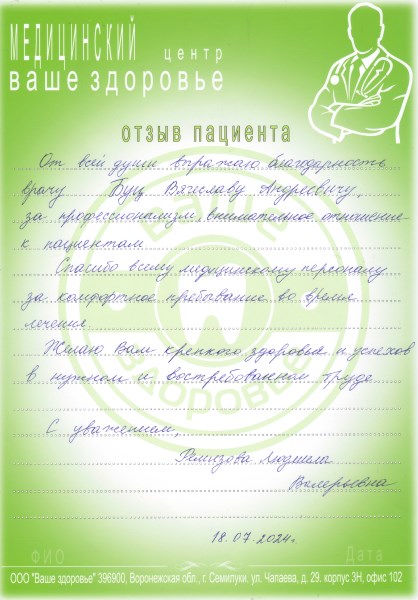 МЕДИЦИНСКИЙ центр
ваше здоровье
отзыв пациента
От всей души выражаю благодарность
врачу Буц Вячеславу Андреевичу,
за профессионализм, внимательное отношение
к пациентам
Спасибо всему медицинскому персоналу
за комфортное пребывание во время
лечения
Желаю Вам крепкого здоровья и успехов
в нужном и востребованном труде
С уважением,
Ремизова Людмила
Валерьевна
18.07.2024г.
ФИО Дата
ООО "Ваше здоровье" 396900, Воронежская обл., г. Семилуки, ул. Чапаева, д. 29. корпус 3Н, офис 102